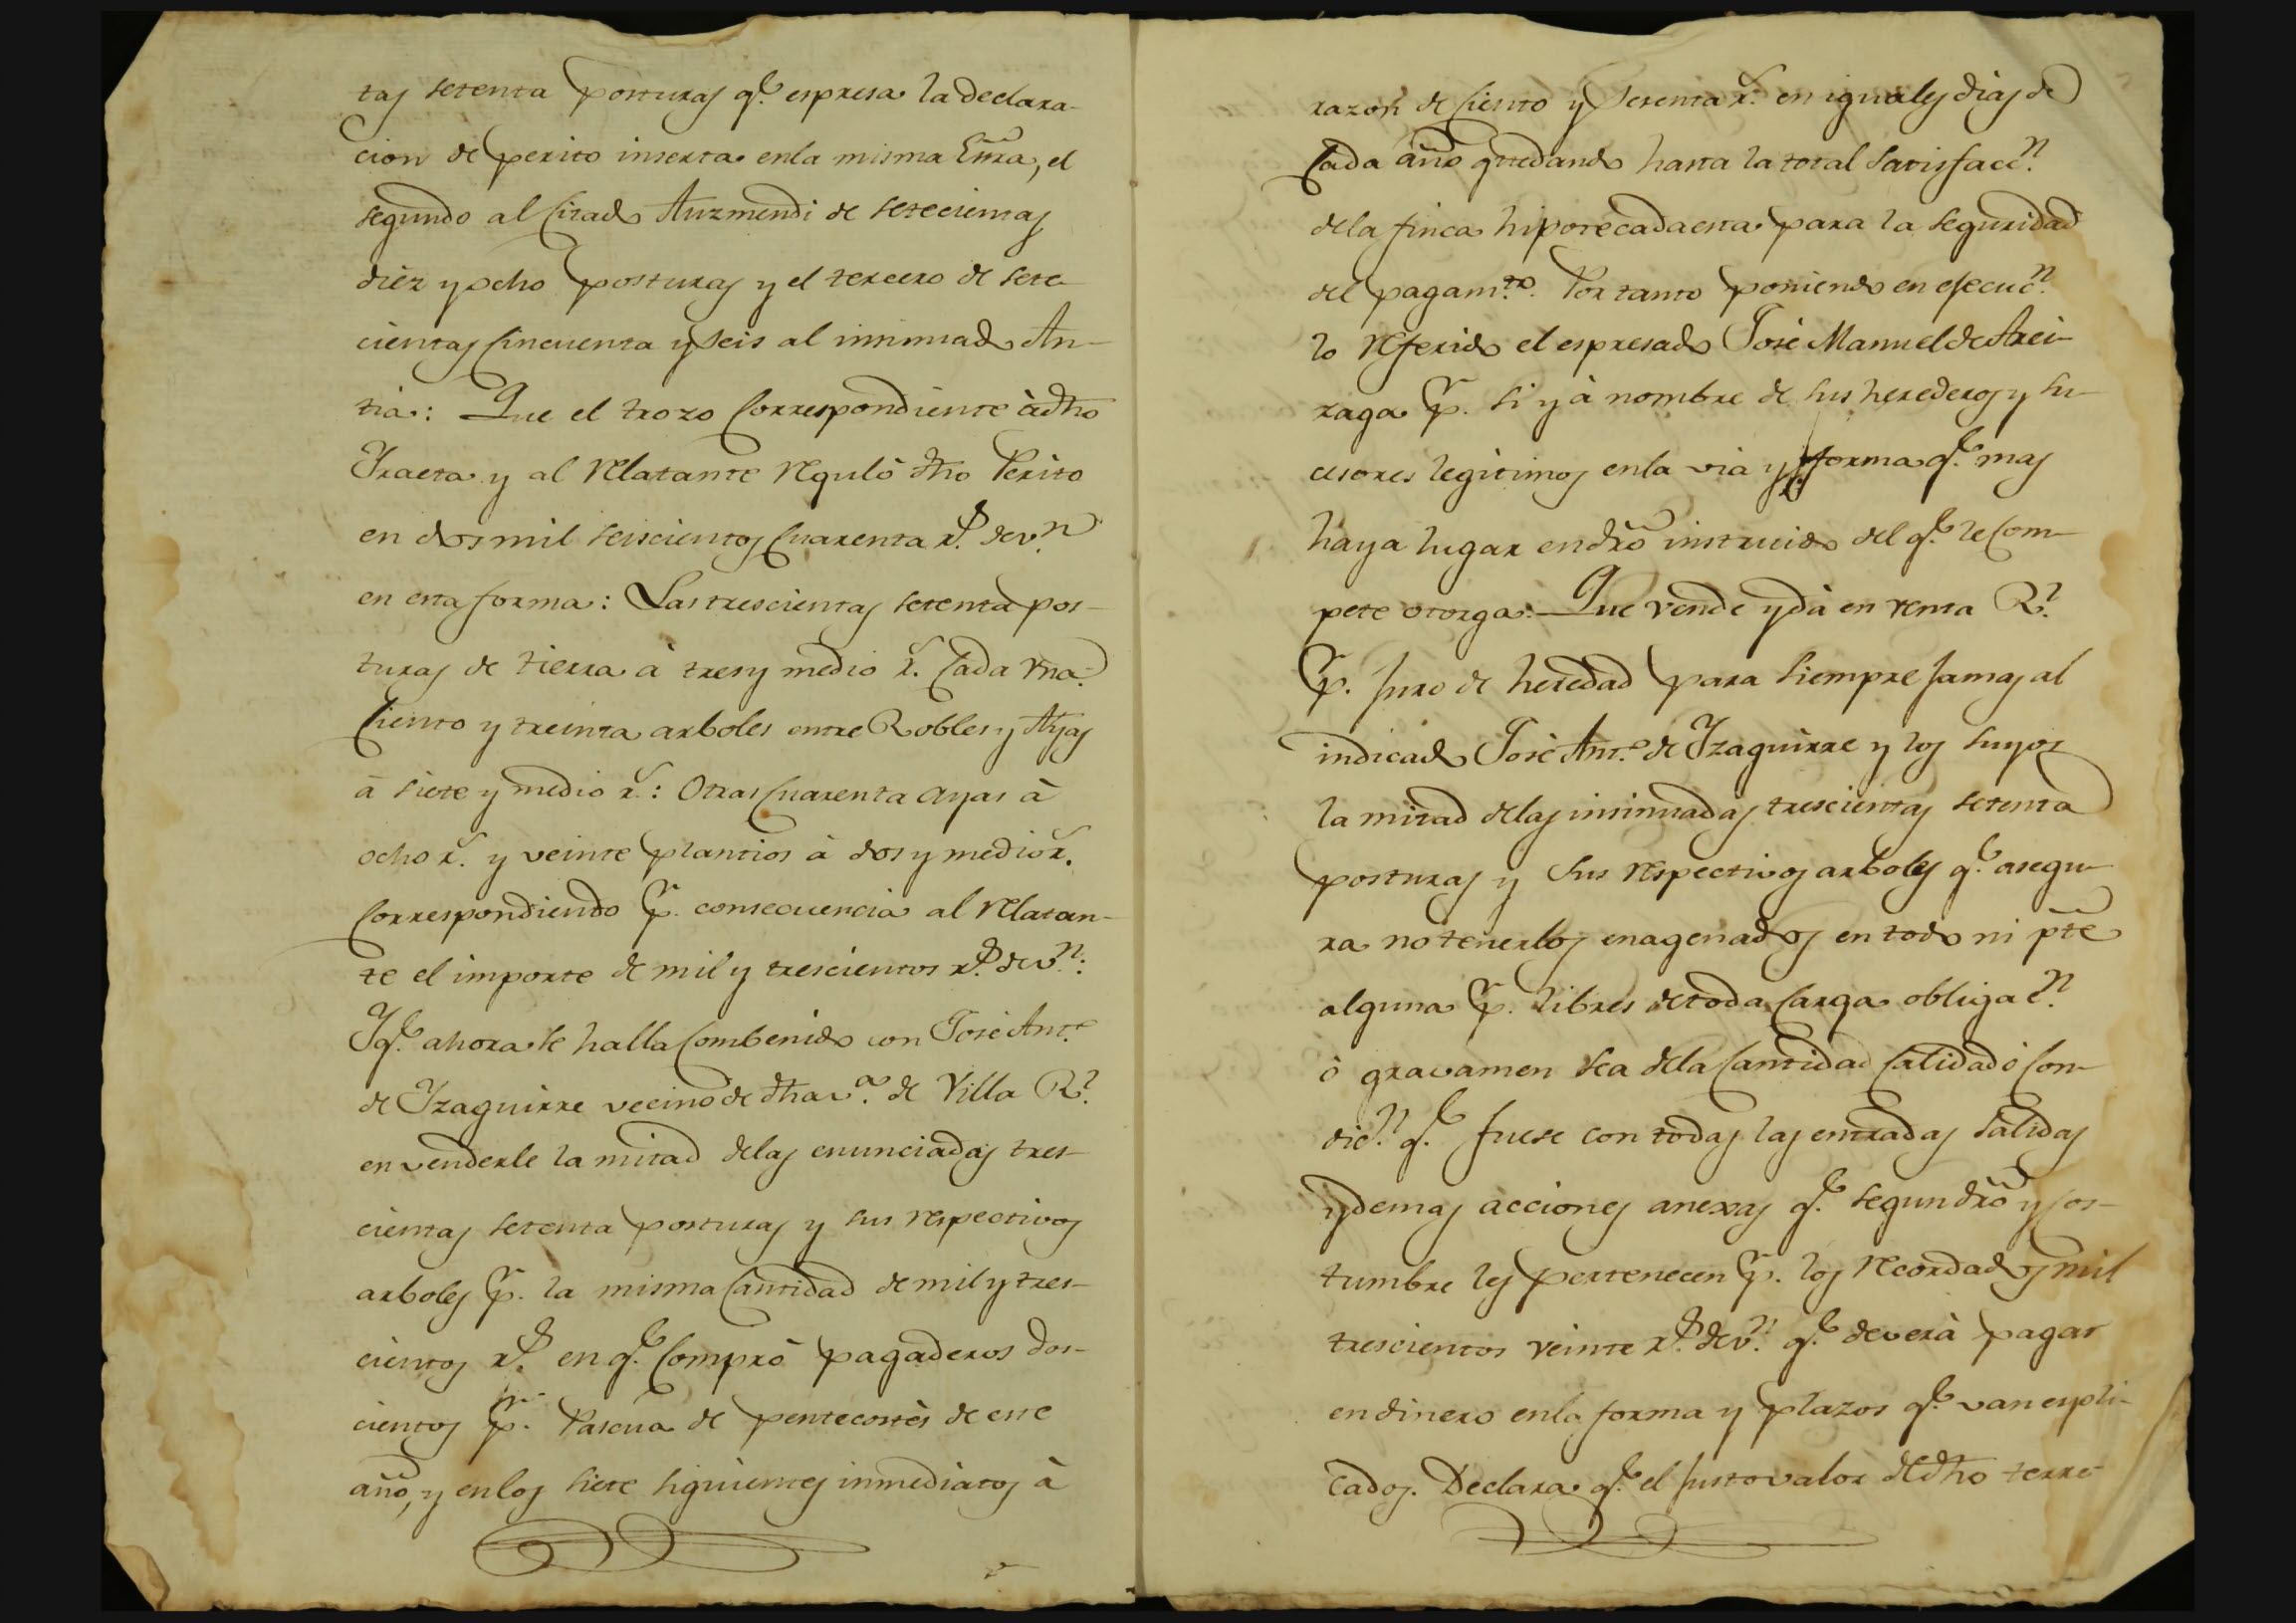 tas setenta posturas q.e espresa la declara-
cion de perito inserta enla misma Es̃cra, el
segundo al Citado Auzmendi de setecientas
diez y ocho posturas y el tercero de sete-
cientas Cincuenta y seis al insinuado An-
tia: Que el trozo Correspondiente à dho
Yraeta y al relatante reguló dho Perito
en dos mil seiscientos Cuarenta r.s de v.n
en esta forma: Las trescientas setenta pos-
turas de tierra à tres y medio r.s Cada una:
Ciento y treinta arboles entre Robles y Ayas
à siete y medio r.s: Otras Cuarenta ayas à
ocho r.s y veinte plantios à dos y medio r.s
Correspondiendo p.r consecuencia al relatan-
te el importe de mil y trescientos r.s de v.n:
Y q.e ahora se halla Combenido con José Ant.o
de Yzaguirre vecino de dha v.a de Villa R.l
en venderle la mitad delas enunciadas tres-
cientas setenta posturas y sus respectivos
arboles p.r la misma Cantidad de mil y tres-
cientos r.s en q.e Compró pagaderos dos-
cientos p.r Pascua de pentecostès de este
año, y en los siete siguientes inmediatos à
razon de Ciento y Setenta r.s en iguales dias de
Cada año quedando hasta la total Satisfacc.n
dela finca hipotecada esta para la seguridad
del pagam.to Por tanto poniendo en ejecuc.n
lo referido el espresado José Manuel de Arei-
zaga p.r si y à nombre de sus herederos y su-
cesores legitimos enla via y forma q.e mas
haya lugar en dr̃o instruido del q.e le Com-
pete otorga: Que vende y dà en venta R.l
p.r juro de heredad para siempre jamas al
indicado José Ant.o de Yzaguirre y los suyos
la mitad delas insinuadas trescientas setenta
posturas y sus respectivos arboles q.e asegu-
ra no tenerlos enagenados en todo ni pt̃e
alguna p.r libres de toda Carga obligac.n
ò gravamen sea dela Cantidad Calidad ò Con-
dic.n q.e fuese con todas las entradas Salidas
y demas acciones anexas q.e segun dr̃o y Cos-
tumbre les pertenecen p.r los recordados mil
trescientos veinte r.s de v.n q.e deverà pagar
en dinero enla forma y plazos q.e van espli-
cados. Declara q.e el justo valor de dho terre-